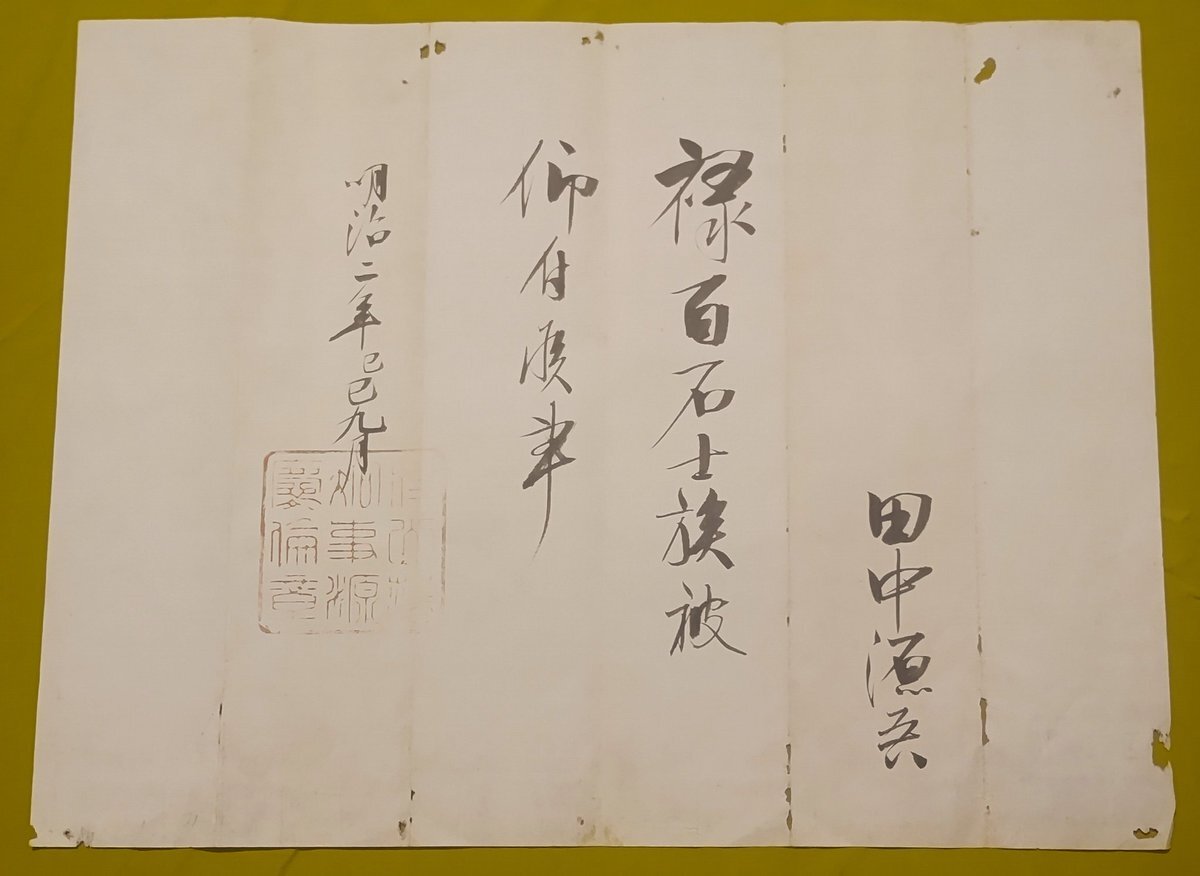 田中源吾
禄百石士族被
仰付候事
明治二年己巳九月
知事源
慶倫章